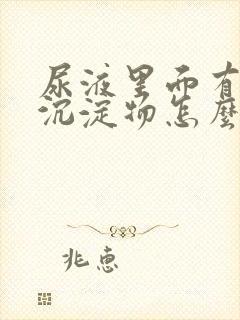 尿液里面有
沉淀物怎麼
兆惠